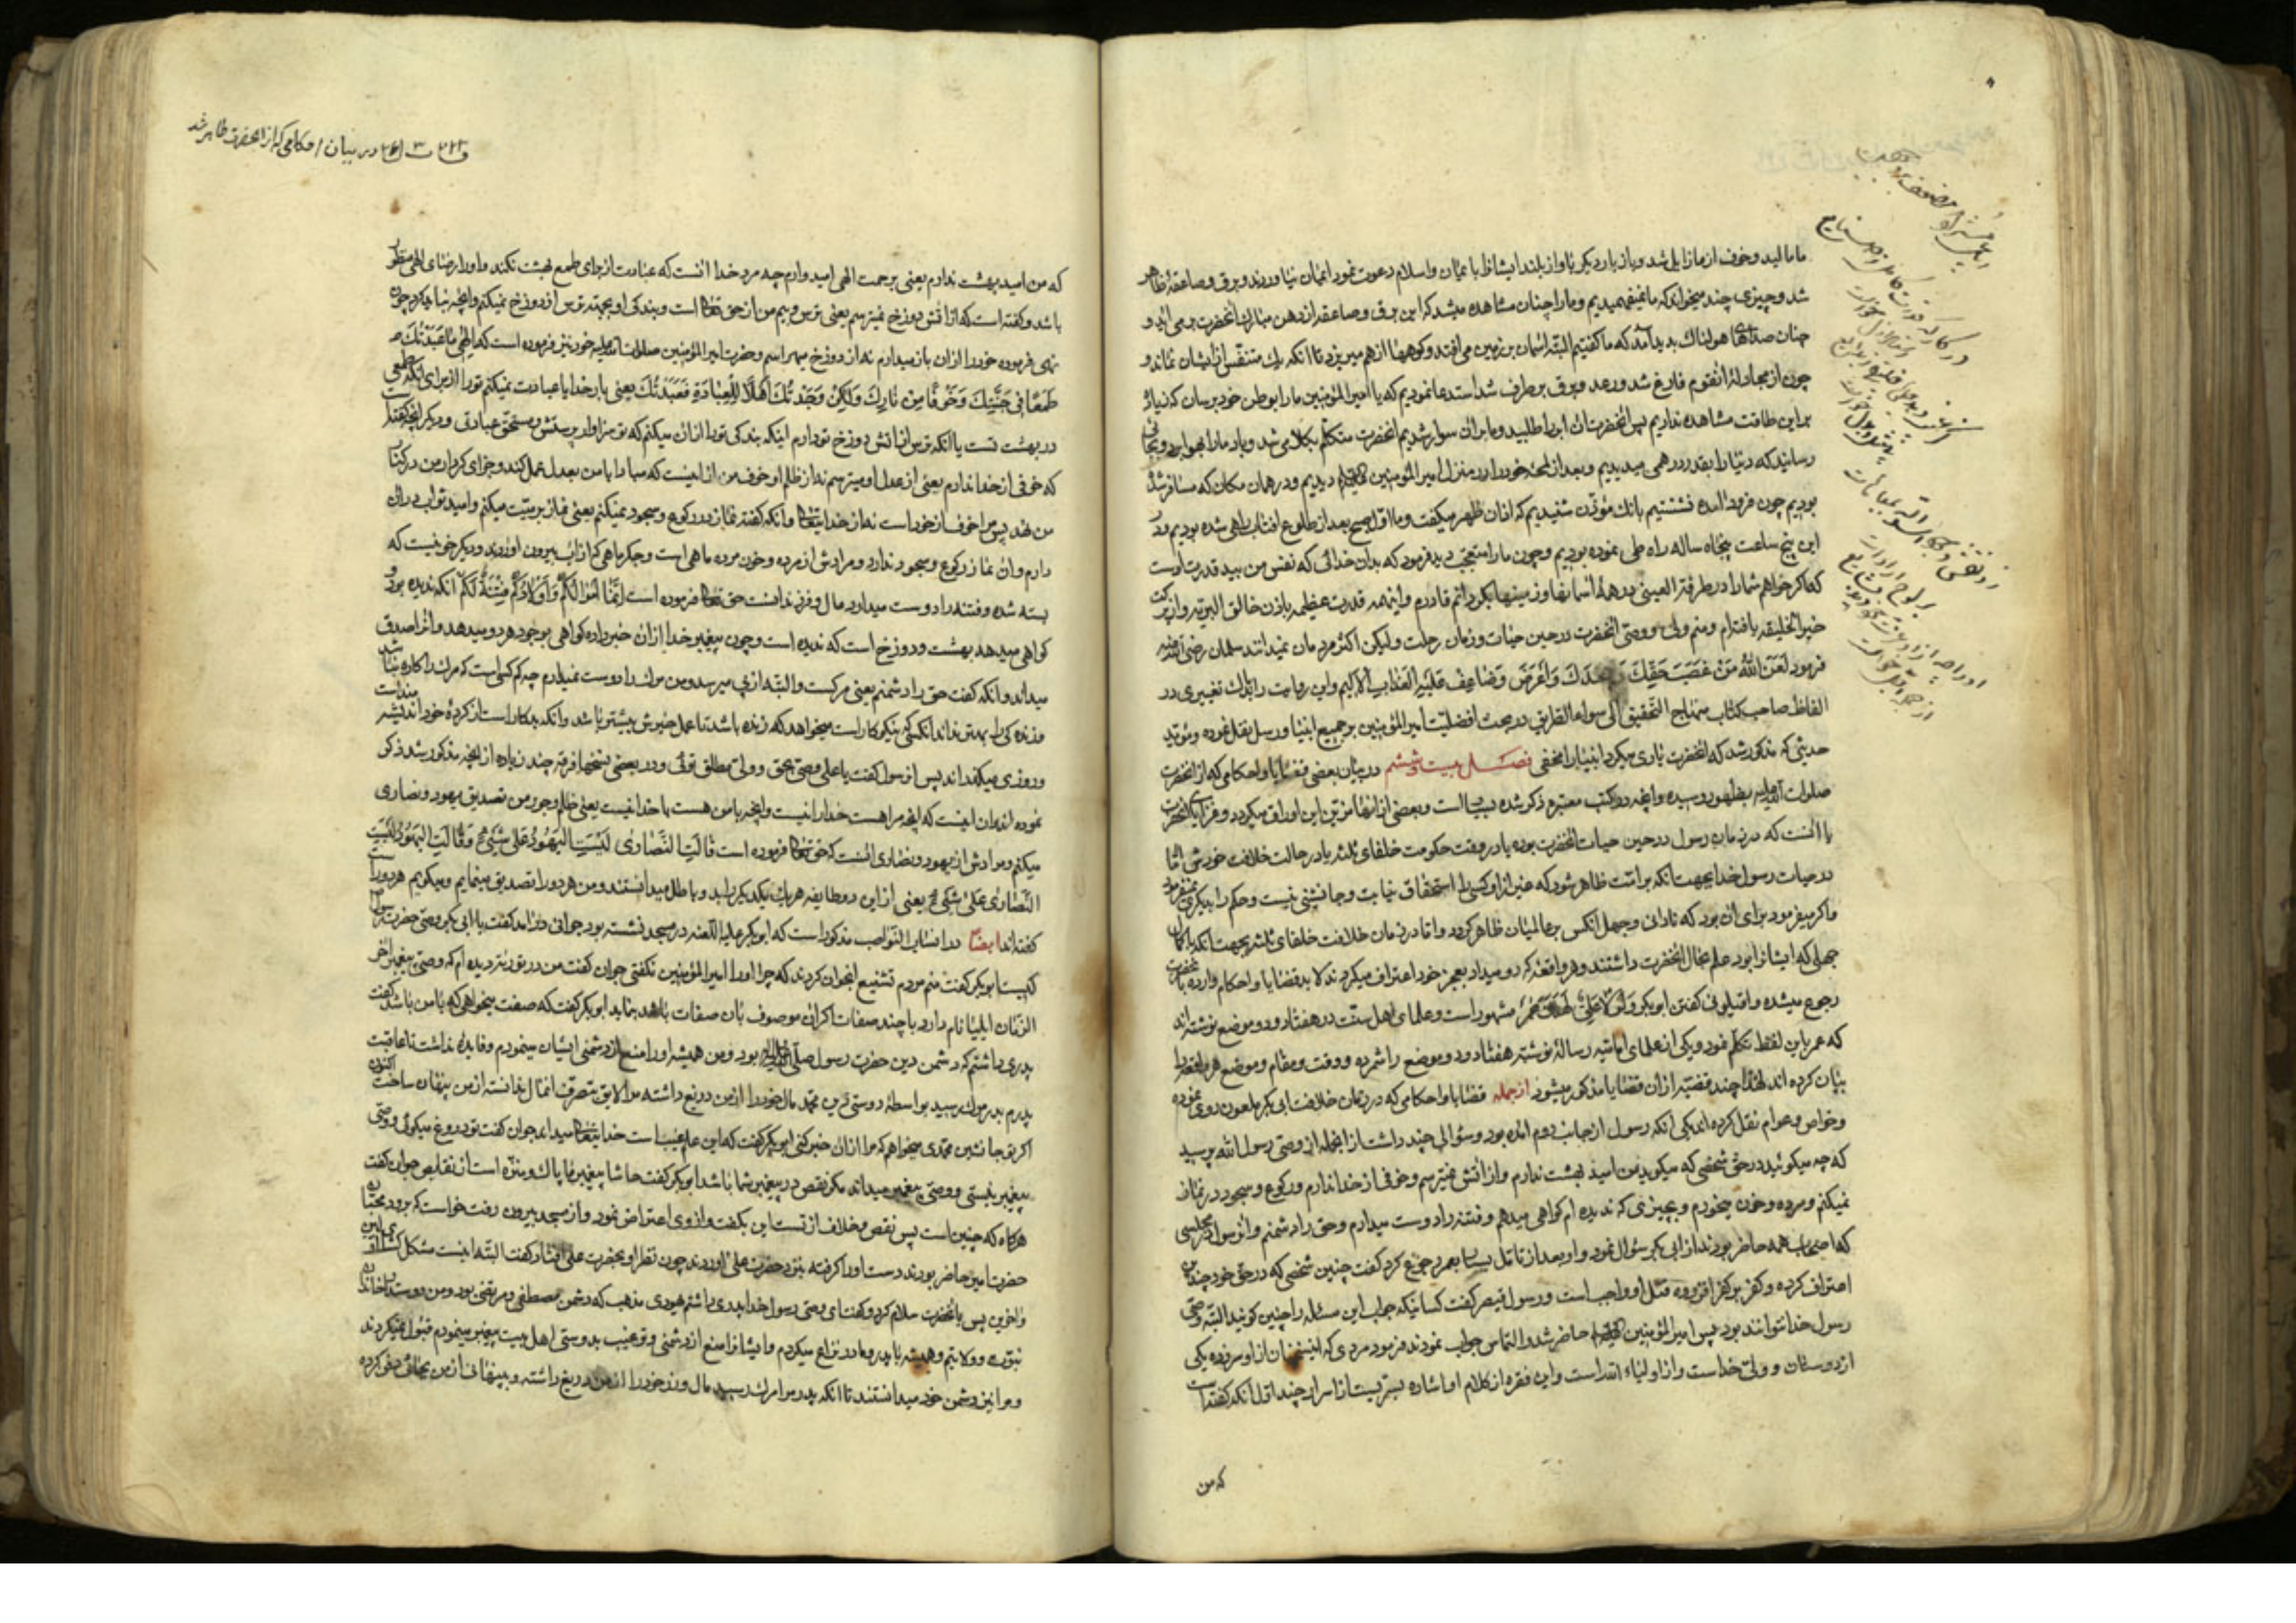 ما مالید و خوف از ما زایل شد و باز بار دیکر باواز بلند ایشانرا بایمان و اسلام دعوت نمود ایمان نیاوردند و برق و صاعقه ظاهر
شد و چیزی چند میخواند که ما نمیفهمیدیم و ما را چنان مشاهده میشد که این برق و صاعقه از دهن مبارک آنحضرت بر می آید و
چنان صداهای هولناک بدید آمد که ما کفتیم البته آسمان بر زمین می افتد و کوهها از هم میریزد تا آنکه یک متنفس از ایشان نماند و
چون از مجادلهٔ آنقوم فارغ شد و رعد و برق بر طرف شد استدعا نمودیم که یا امیر المؤمنین ما را بوطن خود برسان که زیاده
بر این طاقت مشاهده نداریم پس آنحضرت آن ابر را طلبید و ما بر آن سوار شدیم آنحضرت متکلم بکلامی شد و باد ما را بهوا برد و بجائی
رسانید که دنیا را بقدر درهمی میدیدیم و بعد از لمحهٔ خود را در منزل امیر المؤمنین دیدیم و در همان مکان که مسافر شده
بودیم چون فرود آمده نشستیم بانک مؤذن شنیدیم که اذان ظهر میکفت و ما اول صبح بعد از طلوع آفتاب راهی شده بودیم و در
این پنج ساعت پنجاه ساله راه طی نموده بودیم و چون ما را متعجب دید فرمود که بدان خدائی که نفس من بید قدرت اوست
که اگر خواهم شما را در طرفة العینی در همهٔ آسمانها و زمینها بکردانم قادرم و اینهمه قدرت عظیمه باذن خالق البریه و از برکت
خیر الخلیقه یافته‌ام و منم ولی و وصی آنحضرت در حین حیات و زمان رحلت ولیکن اکثر مردمان نمیدانند سلمان رضی الله عنه
فرمود لَعَنَ اللهُ مَنْ غَصَبَ حَقَّكَ وَ جَحَدَكَ وَ أَعْرَضَ وَ ضَاعَفَ عَلَيْهِ الْعَذَابَ الْأَلِيمَ و این روایت را باندک تغییری در
الفاظ صاحب کتاب منهاج التحقیق الی سواء الطریق در بحث افضلیت امیر المؤمنین بر جمیع انبیا و رسل نقل نموده و مؤید
حدیثی که مذکور شد که آنحضرت یاری میکرد انبیا را مخفی فصل بیست و ششم در بیان بعضی قضایا و احکامی که از آنحضرت
صلوات الله علیه بظهور رسیده و آنچه در کتب معتبره ذکر شده بسیار است و بعضی از آنها مزین این اوراق میکردد و قضایای آنحضرت
یا آنست که در زمان رسول در حین حیات آنحضرت بوده یا در وقت حکومت خلفای ثلثه یا در حالت خلافت خودش اما
در حیات رسول خدا بجهت آنکه بر امت ظاهر شود که غیر از او کسی را استحقاق نیابت و جانشینی نیست و حکم را بدیکری نمیفرمود
و اکر میفرمود برای آن بود که نادانی و جهل آنکس بر عالمیان ظاهر کردد و اما در زمان خلافت خلفای ثلثه بجهت آنکه با کمال
جهلی که ایشانرا بود علم بحال آنحضرت داشتند و هر واقعهٔ که رو میداد بعجز خود اعتراف میکردند لا بد قضایا و احکام وارده بآنحضرت
رجوع میشده و اقیلونی کفتن ابو بکر و لَوْلَا عَلِيٌّ لَهَلَكَ عُمَرُ مشهور است و علمای اهل سنت در هفتاد و دو موضع نوشته‌اند
که عمر باین لفظ تکلم نمود و یکی از علمای امامیه رسالهٔ نوشته هفتاد و دو موضع را شمرده و وقت و مقام و موضع هر یک را
بیان کرده اند لهذا چند قضیه از آن قضایا مذکور میشود از جمله قضایا و احکامی که در زمان خلافت ابی بکر ملعون روی نموده
و خواص و عوام نقل کرده اند یکی آنکه رسولی از جانب روم آمده بود و سؤالی چند داشت از آنجمله از وصی رسول الله پرسید
که چه میکوئید در حق شخصی که میکوید من امید بهشت ندارم و از آتش نمیترسم و خوفی از خدا ندارم و رکوع و سجود در نماز
نمیکنم و مرده و خون میخورم و بچیزی که ندیده ام کواهی میدهم و فتنه را دوست میدارم و حق را دشمنم و آن رسول در مجلسی
که اصحاب همه حاضر بودند از ابی بکر سؤال نمود و او بعد از تأمل بسیار بعمر رجوع کرد کفت چنین شخصی که در حق خود چندین
اعتراف کرده و کفر بر کفر افزوده قتل او واجب است و رسول قیصر کفت کسانیکه جواب این مسئله را چنین کویند البته وصی
رسول خدا نتوانند بود پس امیر المؤمنین حاضر شد و التماس جواب نمودند فرمود مردی که اینسخنان از او سر زده یکی
از دوستان و ولی خداست و از اولیاء الله است و این فقره از کلام او اشاره بسریست از اسرار چند اول آنکه کفته است
که من
در بیان احکامی که از آنحضرت ظاهر شد
که من امید بهشت ندارم یعنی برحمت الهی امیدوارم چه مرد خدا آنست که عبادت از برای طمع بهشت نکند و او را رضای الهی منظور
باشد و کفته است که از آتش دوزخ نمیترسم یعنی ترس و بیم من از حق تعالی است و بندکی او بجهة ترس از دوزخ نمیکنم و آنچه نباید کرد چون
نهی فرموده خود را از آن باز میدارم نه از دوزخ میهراسم و حضرت امیر المؤمنین صلوات الله علیه خود نیز فرموده است که إِلٰهِي مَا عَبَدْتُكَ
طَمَعًا فِي جَنَّتِكَ وَ خَوْفًا مِنْ نَارِكَ وَلٰكِنْ وَجَدْتُكَ أَهْلًا لِلْعِبَادَةِ فَعَبَدْتُكَ یعنی بار خدایا عبادت نمیکنم تو را از برای آنکه طمعی
در بهشت تست یا آنکه ترس از آتش دوزخ تو دارم اینکه بندکی تو را از آن میکنم که تو سزاوار پرستش و مستحق عبادتی و دیکر آنچه کفته است
که خوفی از خدا ندارم یعنی از عدل او میترسم نه از ظلم او خوف من از اینست که مبادا با من بعدل عمل کند و جزای کردار من در کنار
من نهد پس مرا خوف از خود است نه از خدایتعالی و آنکه کفته نماز در رکوع و سجود نمیکنم یعنی نماز بر میت میکنم و امید ثواب در آن
دارم و آن نماز رکوع و سجود ندارد و مرادش از مرده و خون مرده ماهی است و جکر ماهی که از آب بیرون آورند و دیکر خونیست که
بسته شده و فتنه را دوست میدارد مال و فرزندانست حق تعالی فرموده است إِنَّمَا أَمْوَالُكُمْ وَ أَوْلَادُكُمْ فِتْنَةٌ لَكُمْ آنکه ندیده بود و
کواهی میدهد بهشت و دوزخ است که ندیده است و چون پیغمبر خدا از آن خبر داده کواهی بوجود هر دو میدهد و آنرا صدق
میداند و آنکه کفت حق را دشمنم یعنی مرکست و البته از پی میرسد و من مرک را دوست نمیدارم چه کم کسی است که مرک را کاره نباشد
و زنده کی را بهتر نداند آنکس که نیکو کار است میخواهد که زنده باشد تا عمل خیرش بیشتر باشد و آنکه بد کار است از کردهٔ خود اندیشه منداست
و روزی میکذراند پس آن رسول کفت یا علی وصی بحق و ولی مطلق توئی و در بعضی نسخها فقره چند زیاده از آنچه مذکور شد ذکر
نموده اند و آن اینست که آنچه مرا هست خدا را نیست و آنچه با من هست با خدا نیست یعنی ظلم و جور من تصدیق یهود و نصاری
میکنم و مرادش از یهود و نصاری آنست که حق تعالی فرموده است قَالَتِ النَّصَارَى لَيْسَتِ الْيَهُودُ عَلَى شَيْءٍ وَ قَالَتِ الْيَهُودُ لَيْسَتِ
النَّصَارَى عَلَى شَيْءٍ یعنی از این دو طایفه هر یک یکدیکر را بد و باطل میدانستند و من هر دو را تصدیق مینمایم و میکویم هر دو راست
کفته اند ایضاً در انساب النواصب مذکور است که ابو بکر علیه اللعنه در مسجد نشسته بود جوانی در آمد کفت یا ابی بکر وصی حضرت رسول
کیست ابو بکر کفت منم مردم تشنیع آنجوان کردند که چرا او را امیر المؤمنین نکفتی جوان کفت من در توریة دیده ام که وصی پیغمبر آخر
الزمان ایلیا نام دارد با چند صفات اکر آن موصوف بآن صفات باشد بنماید ابو بکر کفت که صفت میخواهی که با من باشد کفت
پدری داشتم که دشمن دین حضرت رسول بود و من همیشه او را منع از دشمنی ایشان مینمودم و فایدهٔ نداشت تا عاقبت
پدرم بمرک رسید بواسطهٔ دوستی من محمد مال خود را از من دریغ داشته مرا لایق بتصرف آنمال ندانسته از من پنهان ساخت اکنون
اکر تو جانشین محمدی میخواهم که مرا از آن خبر کنی ابو بکر کفت که این علم غیب است خدایتعالی میداند جوان کفت تو دروغ میکوئی وصی
پیغمبر نیستی و وصی پیغمبر میداند مکر نقص در پیغمبر شما باشد ابو بکر کفت حاشا پیغمبر ما پاک و منزه است از نقایص جوان کفت
هرکاه که چنین است پس نقص و خلاف از تست این بکفت و از وی اعتراض نمود و از مسجد بیرون رفت خواست که برود محبان
حضرت امیر حاضر بودند دست او را کرفته بنزد حضرت علی آوردند چون نظر او بحضرت علی افتاد کفت البته اینست مشکل کشای اولین
و آخرین پس بآنحضرت سلام کرد و کفت ای وصی رسول خدا پدری داشتم یهودی مذهب که دشمن مصطفی و مرتضی بود و من دوستدار خاندان
نبوت و ولایتم و همیشه با پدر و مادر نزاع میکردم و ایشانرا منع از دشمنی و ترغیب بدوستی اهل بیت پیغمبر مینمودم قبول نمیکردند
و مرا نیز دشمن خود میدانستند تا آنکه پدر مرا مرک رسید مال و زر خود را از من دریغ داشته و بپنهانی از من بجائی دفن کرده